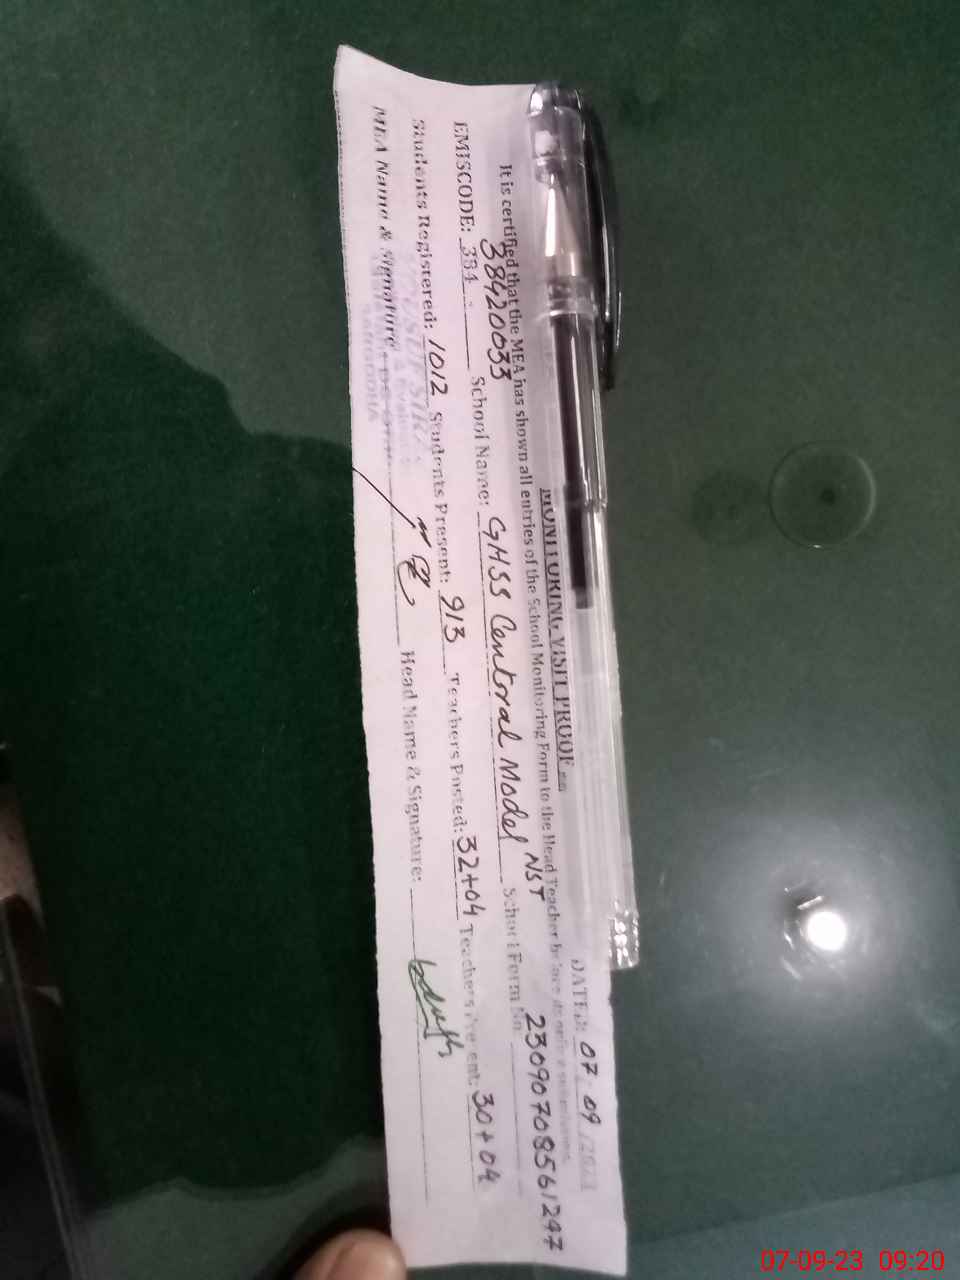 MONITORING VISIT PROOF
DATED: 07 09
It is certified that the MEA has shown all entries of the School Monitoring Form to the Head Teacher before its
38420033
EMISCODE: 384 School Name: GHSS Centoral Model NST School Form No. 23090708561247
Students Registered: 1012 Students Present: 913 Teachers Posted: 32+04 Teachers Present: 30+04
MEA Name & Signature Head Name & Signature:
SARGODHA
07-09-23 09:20